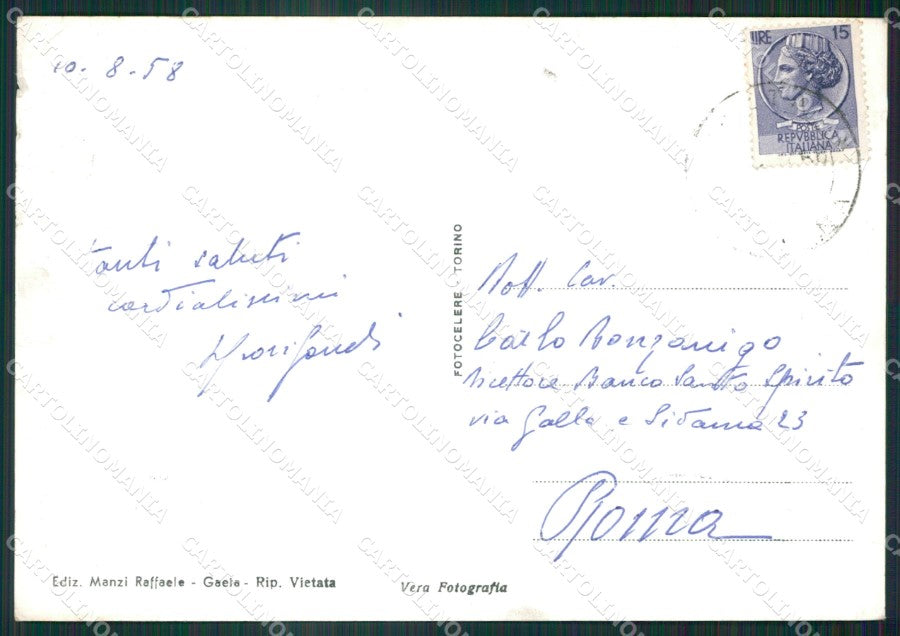 10. 8. 58
LIRE 15
POSTE
REPVBBLICA
ITALIANA
tanti saluti
cordialissimi
FOTOCELERE - TORINO
Dott. Cav.
Carlo Monzanigo
Direttore Banco Santo Spirito
via Galla e Sidama 23
Roma
Ediz. Manzi Raffaele - Gaeta - Rip. Vietata
Vera Fotografia
CARTOLINOMANIA